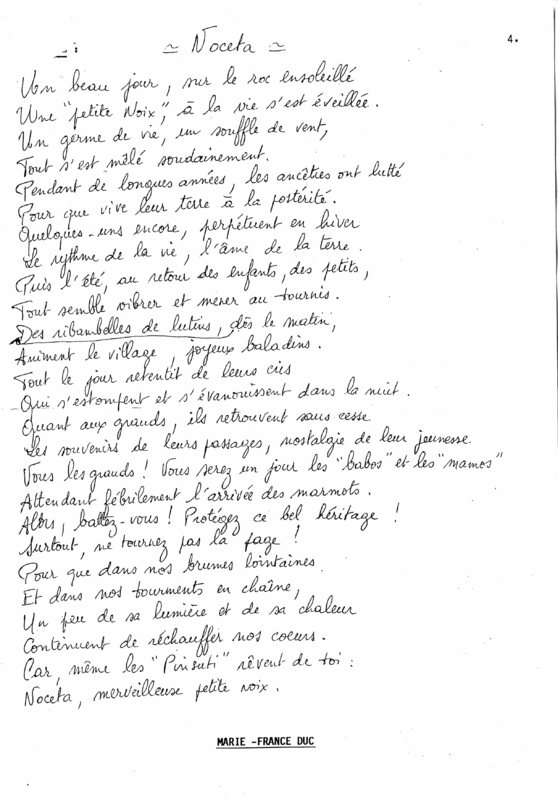 4.
~ Noceta ~
Un beau jour, sur le roc ensoleillé
Une "petite Noix", à la vie s'est éveillée.
Un germe de vie, un souffle de vent,
Tout s'est mêlé soudainement.
Pendant de longues années, les ancêtres ont lutté
Pour que vive leur terre à la postérité.
Quelques-uns encore, perpétuent en hiver
Le rythme de la vie, l'âme de la terre.
Puis l'été, au retour des enfants, des petits,
Tout semble vibrer et mener au tournis.
Des ribambelles de lutins, dès le matin,
Animent le village, joyeux baladins.
Tout le jour retentit de leurs cris
Qui s'estompent et s'évanouissent dans la nuit.
Quant aux grands, ils retrouvent sans cesse
Les souvenirs de leurs passages, nostalgie de leur jeunesse
Vous les grands ! Vous serez un jour les "babos" et les "mamos"
Attendant fébrilement l'arrivée des marmots.
Alors, battez-vous ! Protégez ce bel héritage !
Surtout, ne tournez pas la page !
Pour que dans nos brumes lointaines
Et dans nos tourments en chaîne,
Un peu de sa lumière et de sa chaleur
Continuent de réchauffer nos coeurs.
Car, même les "Pinsuti" rêvent de toi :
Noceta, merveilleuse petite noix.
MARIE -FRANCE DUC